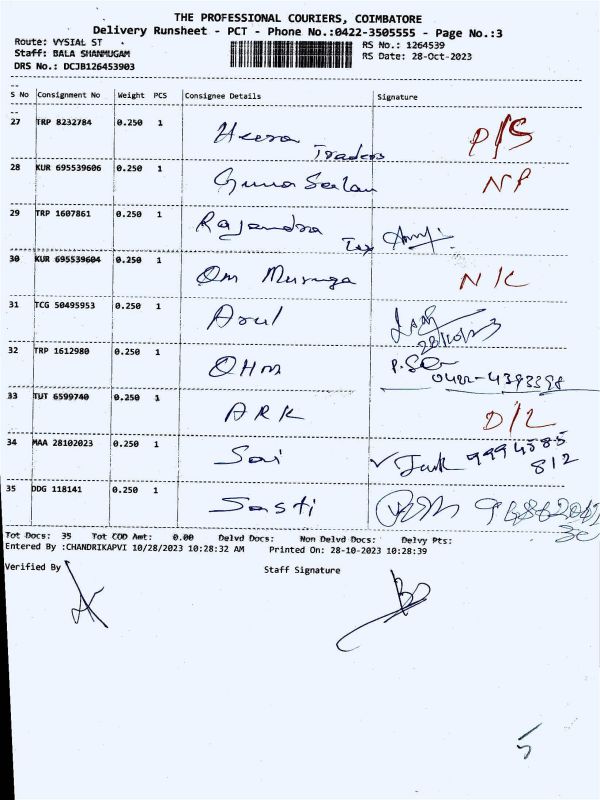 THE PROFESSIONAL COURIERS, COIMBATORE
Delivery Runsheet - PCT - Phone No.:0422-3505555 - Page No.:3
Route: VYSIAL ST RS No.: 1264539
Staff: BALA SHANMUGAM RS Date: 28-Oct-2023
DRS No.: DCJB126453903
S No Consignment No Weight PCS Consignee Details Signature
27 TRP 8232784 0.250 1 Heera Traders P/S
28 KUR 695539606 0.250 1 Guna Seelan NP
29 TRP 1607861 0.250 1 Rajendra Tex
30 KUR 695539604 0.250 1 Om Muruga N/C
31 TCG 50495953 0.250 1 Arul 28/10/23
32 TRP 1612980 0.250 1 OHM 0422-4393398
33 TUT 6599740 0.250 1 ARK D/L
34 MAA 28102023 0.250 1 Sai 9994585
812
35 DDG 118141 0.250 1 Sasti
Tot Docs: 35 Tot COD Amt: 0.00 Delvd Docs: Non Delvd Docs: Delvy Pts:
Entered By :CHANDRIKAPVI 10/28/2023 10:28:32 AM Printed On: 28-10-2023 10:28:39
Verified By Staff Signature
5